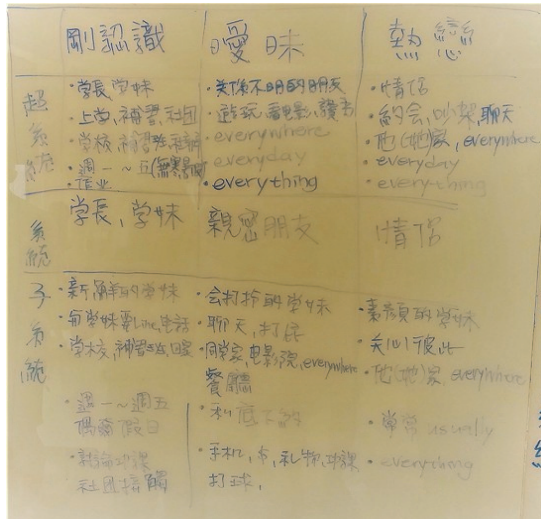 剛認識
曖昧
熱戀
超系統
・学長,学妹
・上学,補習,社团
・学校,補習班,社
・週一~五
・作业
・关係不明的朋友
・遊玩,看电影,讀書
・everywhere
・everyday
・everything
・情侶
・約会,吵架,聊天
・他(她)家,everywhere
・everyday
・everything
系統
学長,学妹
親密朋友
情侶
子系統
・新鮮的学妹
・向学妹要Line,电話
・学校,補習班,
・週一~週五
偶爾假日
・討論功課
社团接觸
・会打扮的学妹
・聊天,打屁
・同学家,电影院,everywhere
餐廳
・手机,市,礼物,功課
打球,
・素顏的学妹
・关心彼此
・他(她)家,everywhere
・常常usually
・everything